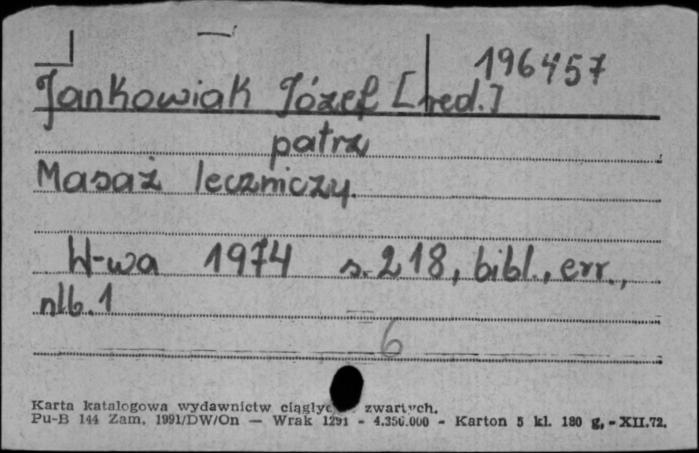 196457
Jankowiak Józef [red.]
patrz
Masaż leczniczy.
W-wa 1974 s. 218, bibl., err.,
nlb. 1
6
Karta katalogowa wydawnictw ciągłyc zwartych.
Pu-B 144 Zam. 1991/DW/On — Wrak 1291 - 4.350.000 - Karton 5 kl. 180 g. - XII.72.